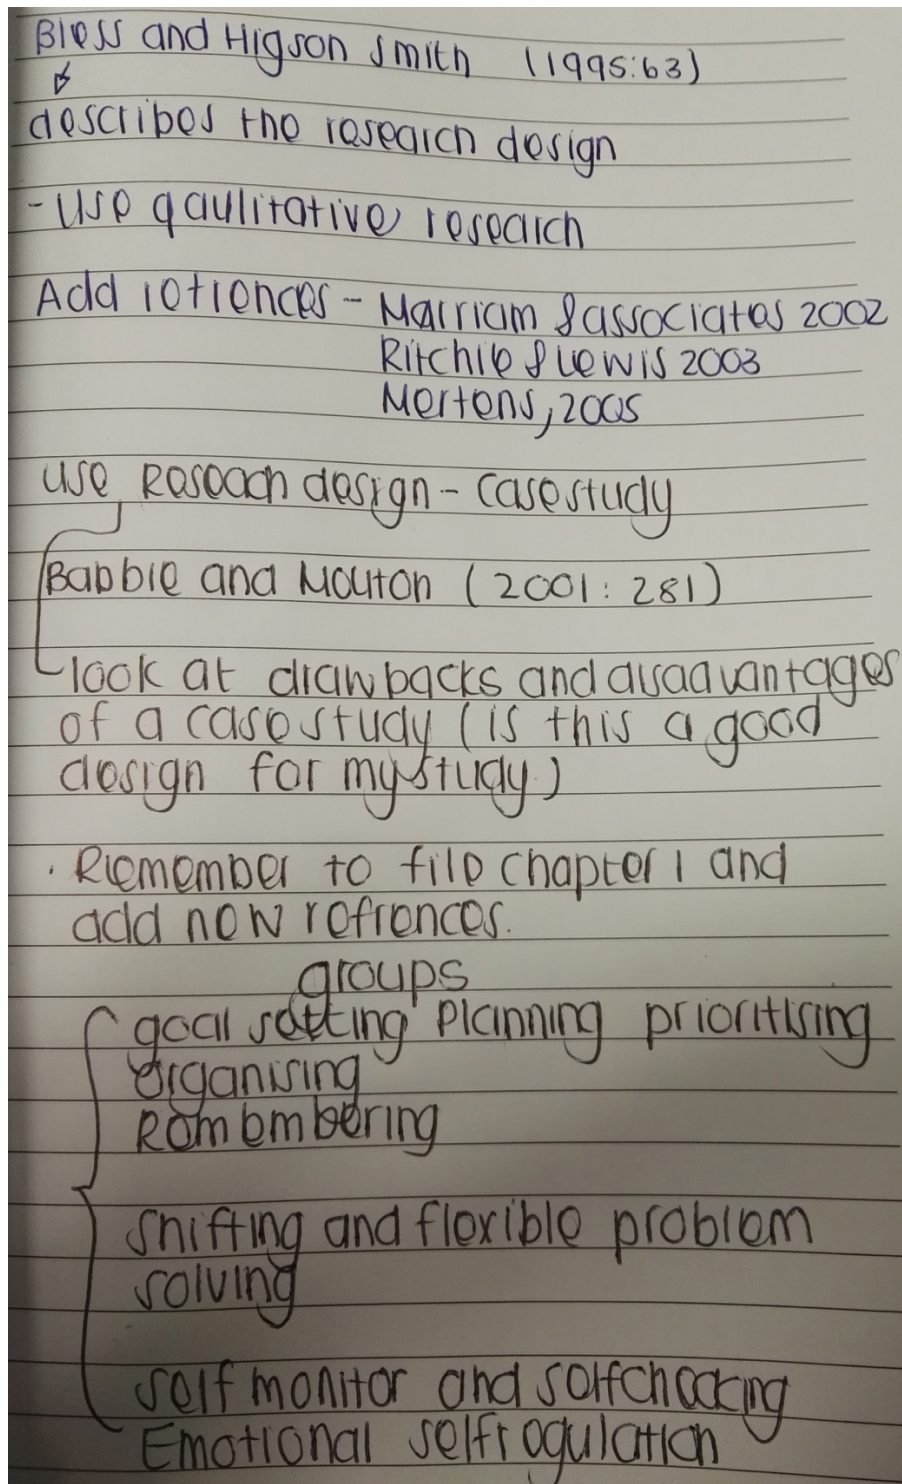 Bless and Higson Smith (1995:63)
describes the research design
- Use qaulitative research
Add refrences - Marriam & associates 2002
Ritchie & Lewis 2003
Mertens, 2005
use Reseach design - casestudy
Babbie and Mouton (2001: 281)
look at drawbacks and disadvantages
of a case study (is this a good
design for my study)
. Remember to file chapter 1 and
add new refrences.
groups
goal setting planning prioritising
organising
Remembering
Shifting and flexible problem
solving
self monitor and selfchecking
Emotional selfregulation